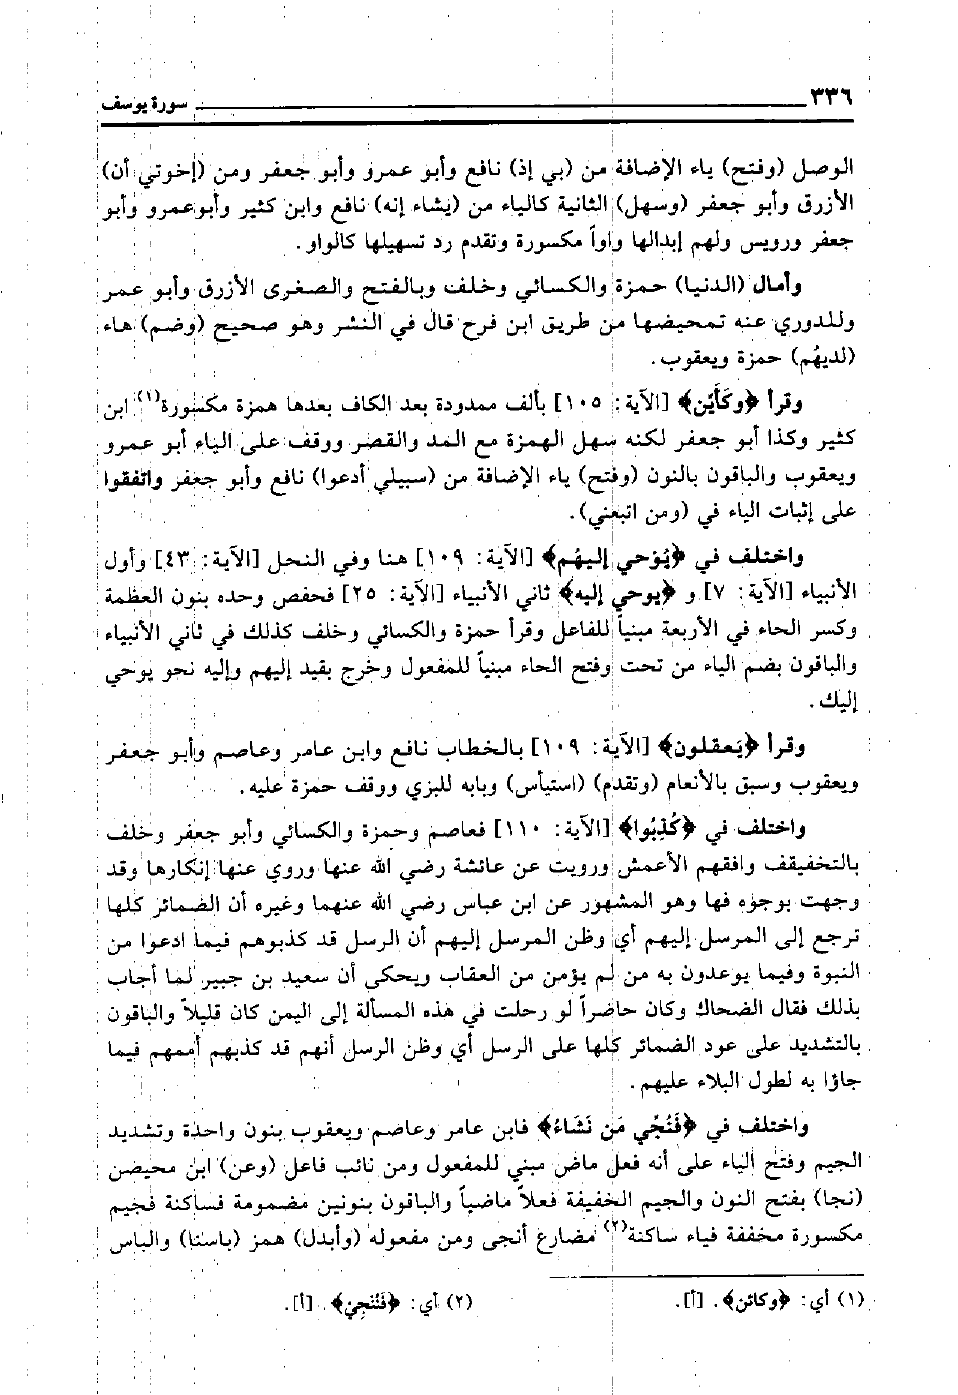 ٣٣٦ سورة يوسف
الوصل (وفتح) ياء الإضافة من (بي إذ) نافع وأبو عمرو وأبو جعفر ومن (إخوتي أن)
الأزرق وأبو جعفر (وسهل) الثانية كالياء من (يشاء إنه) نافع وابن كثير وأبو عمرو وأبو
جعفر ورويس ولهم إبدالها واواً مكسورة وتقدم رد تسهيلها كالواو.
وأمال (الدنيا) حمزة والكسائي وخلف وبالفتح والصغرى الأزرق وأبو عمر
وللدوري عنه تمحيضها من طريق ابن فرح قال في النشر وهو صحيح (وضم) هاء
(لديهُم) حمزة ويعقوب.
وقرأ ﴿وكَأَيّن﴾ [الآية: ١٠٥] بألف ممدودة بعد الكاف بعدها همزة مكسورة(١) ابن
كثير وكذا أبو جعفر لكنه سهل الهمزة مع المد والقصر ووقف على الياء أبو عمرو
ويعقوب والباقون بالنون (وفتح) ياء الإضافة من (سبيلي أدعوا) نافع وأبو جعفر واتفقوا
على إثبات الياء في (ومن اتبعني).
واختلف في ﴿يُوْحي إليهُم﴾ [الآية: ١٠٩] هنا وفي النحل [الآية: ٤٣] وأول
الأنبياء [الآية: ٧] و ﴿يوحي إليه﴾ ثاني الأنبياء [الآية: ٢٥] فحفص وحده بنون العظمة
وكسر الحاء في الأربعة مبنياً للفاعل وقرأ حمزة والكسائي وخلف كذلك في ثاني الأنبياء
والباقون بضم الياء من تحت وفتح الحاء مبنياً للمفعول وخرج بقيد إليهم وإليه نحو يوحي
إليك.
وقرأ ﴿يَعقلون﴾ [الآية: ١٠٩] بالخطاب نافع وابن عامر وعاصم وأبو جعفر
ويعقوب وسبق بالأنعام (وتقدم) (استيأس) وبابه للبزي ووقف حمزة عليه.
واختلف في ﴿كُذِبُوا﴾ [الآية: ١١٠] فعاصم وحمزة والكسائي وأبو جعفر وخلف
بالتخفيقف وافقهم الأعمش ورويت عن عائشة رضي الله عنها وروي عنها إنكارها وقد
وجهت بوجوه فها وهو المشهور عن ابن عباس رضي الله عنهما وغيره أن الضمائر كلها
ترجع إلى المرسل إليهم أي وظن المرسل إليهم أن الرسل قد كذبوهم فيما ادعوا من
النبوة وفيما يوعدون به من لم يؤمن من العقاب ويحكى أن سعيد بن جبير لما أجاب
بذلك فقال الضحاك وكان حاضراً لو رحلت في هذه المسألة إلى اليمن كان قليلاً والباقون
بالتشديد على عود الضمائر كلها على الرسل أي وظن الرسل أنهم قد كذبهم أممهم فيما
جاؤا به لطول البلاء عليهم.
واختلف في ﴿فَنُجِّي مَن نَشَاءُ﴾ فابن عامر وعاصم ويعقوب بنون واحدة وتشديد
الجيم وفتح الياء على أنه فعل ماض مبني للمفعول ومن نائب فاعل (وعن) ابن محيصن
(نجا) بفتح النون والجيم الخفيفة فعلاً ماضياً والباقون بنونين مضمومة فساكنة فجيم
مكسورة مخففة فياء ساكنة(٢) مضارع أنجى ومن مفعوله (وأبدل) همز (باسنا) والباس
(١) أي: ﴿وكائن﴾. [أ].
(٢) أي: ﴿فَنُنجِيْ﴾. [أ].